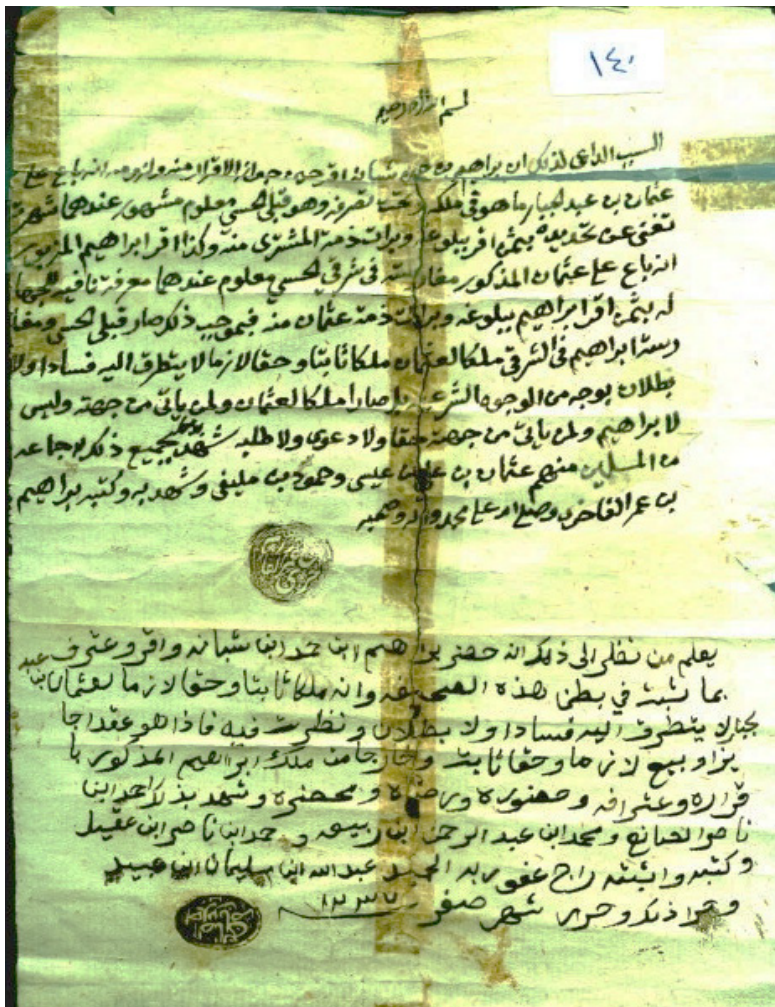 ١٤٠
بسم الله الرحمن الرحيم
السبب الداعي لذلك ان براهيم بن حمد بن شبانه اقر حين جواز الاقرار منه ولزومه انه باع على
عثمان بن عبدالجبار ما هو في ملكه وتحت تصرفه وهو قبلي الحسي معلوم مشهور عندهما شهرة
تغني عن تحديده بثمن اقر ببلوغه وبرائت ذمة المشتري منه وكذا اقر ابراهيم المزبور
انه باع على عثمان المذكور مغارسته في شرقي الحسي معلوم عندهما معرفة نافيه للجهالة
له بثمن اقر ابراهيم ببلوغه وبرائت ذمة عثمان منه فبموجب ذلك صار قبلي الحسي ومغا
رسة ابراهيم في الشرقي ملكا لعثمان ملكا ثابتا وحقا لازما لا يتطرق اليه فسادا ولا
بطلان بوجه من الوجوه الشرعيه بل صارا ملكا لعثمان ولمن ياتي من جهته وليس
لابراهيم ولمن ياتي من جهته حقا ولا دعوى ولا طلبه شهد بجميع ذلك جماعه
من المسلمين منهم عثمان بن علي بن عيسى وحمود بن مليفي وشهد به وكتبه براهيم
بن عمر الفاخري وصلى الله على محمد واله وصحبه
يعلم من نظر الى ذلك انه حضر براهيم ابن حمد ابن شبانه واقر وعترف
بما ثبت في بطن هذه الصحيفه وانه ملكا ثابتا وحقا لازما لعثمان بن عبد
لجبار لا يتطرق اليه فسادا ولا بطلان ونظرت فيه فاذا هو عقدا جا
يزا وبيع لازما وحقا ثابت وخارجا من ملك ابراهيم المذكور با
قراره وعترافه وحضوره ورضاه ومحضره وشهد بذلك احمد ابن
ناصر الصانع ومحمد ابن عبد الرحمن ابن ربيعه وحمد ابن ناصر ابن عقيل
وكتبه واثبته راج عفو ربه المجيد عبدالله ابن سليمان ابن عبيد
وجرا ذلك وحرر شهر صفر ١٢٣٧